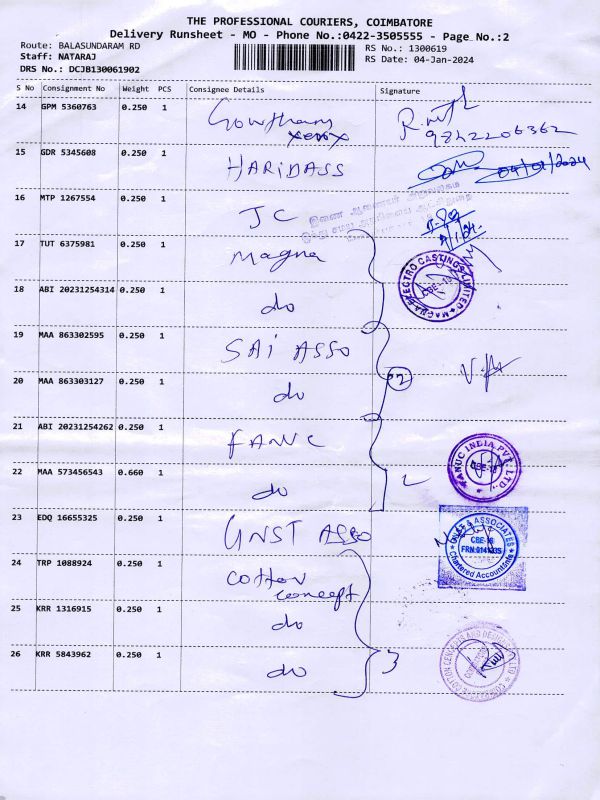 THE PROFESSIONAL COURIERS, COIMBATORE
Delivery Runsheet - MO - Phone No.:0422-3505555 - Page No.:2
Route: BALASUNDARAM RD
RS No.: 1300619
Staff: NATARAJ
RS Date: 04-Jan-2024
DRS No.: DCJB130061902
S No Consignment No Weight PCS Consignee Details Signature
14 GPM 5360763 0.250 1 Gowtham
xerox
9842206362
15 GDR 5345608 0.250 1 HARIDASS 04/01/2024
16 MTP 1267554 0.250 1 JC
17 TUT 6375981 0.250 1 Magna
MAGNA ELECTRO CASTINGS LIMITED
CBE-18
18 ABI 20231254314 0.250 1 do
19 MAA 863302595 0.250 1 SAI ASSO
20 MAA 863303127 0.250 1 do 2
21 ABI 20231254262 0.250 1 FANUC
FANUC INDIA PVT. LTD.
CBE-18
22 MAA 573456543 0.660 1 do
23 EDQ 16655325 0.250 1 GNST ASSO
& ASSOCIATES
CBE-18
Chartered Accountants
24 TRP 1088924 0.250 1 Cotton
concept
25 KRR 1316915 0.250 1 do
26 KRR 5843962 0.250 1 do 3